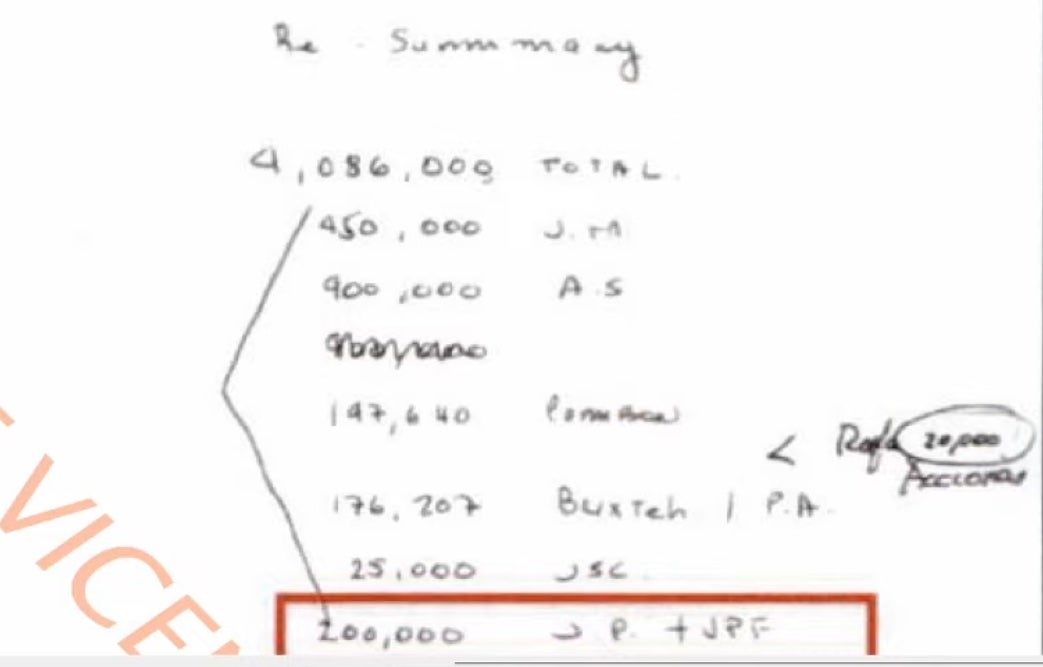 Re - Summary
4,086,000 TOTAL.
450,000 J.M
900,000 A.S
147,640
< Rafa 20,000
Acciones
176,207 Buxteh / P.A.
25,000 JSC.
200,000 → P. + JPF
VICEN